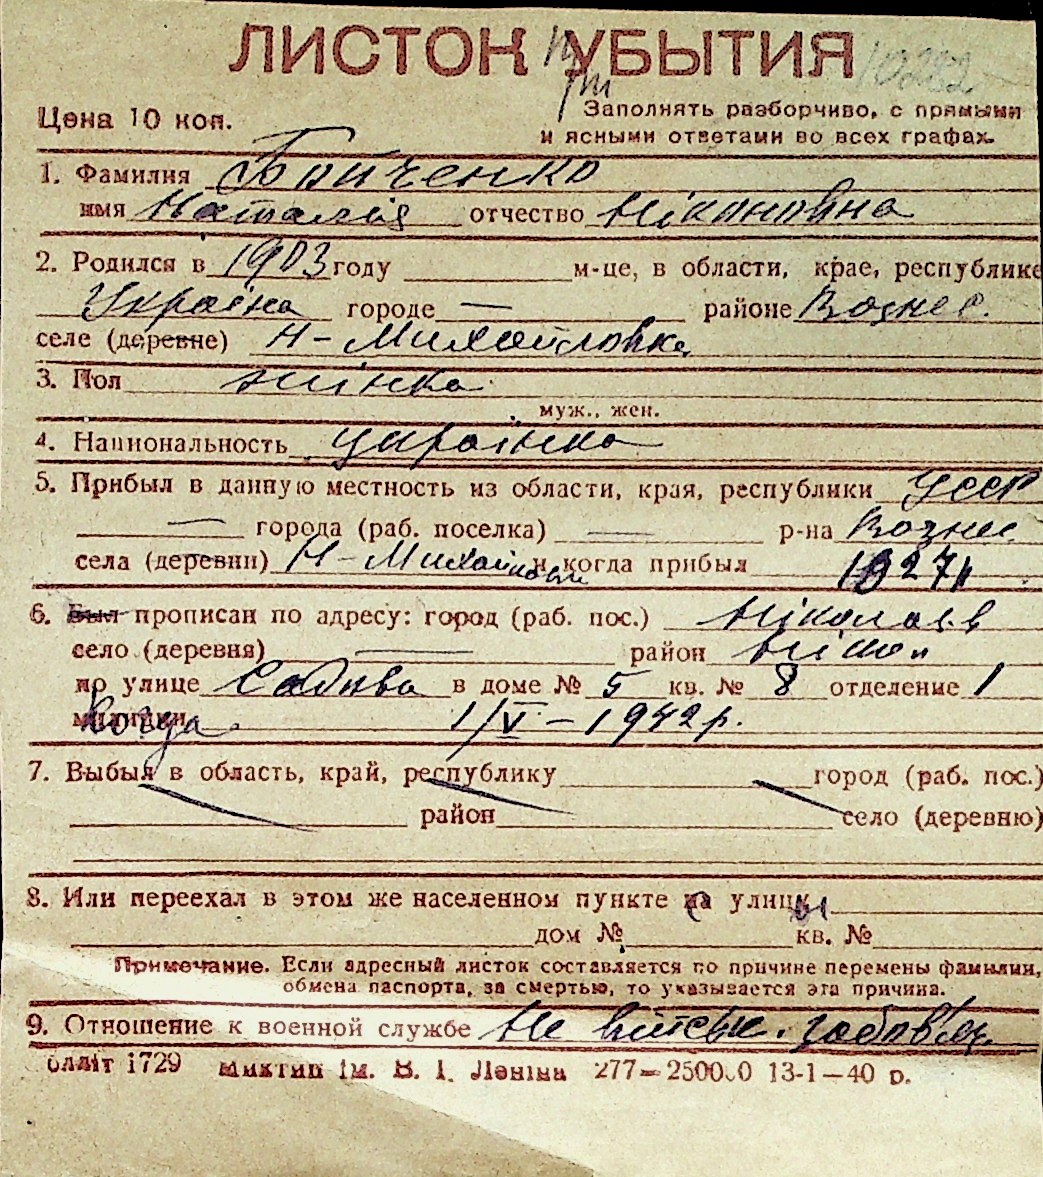 ЛИСТОК УБЫТИЯ
Цена 10 коп.
Заполнять разборчиво, с прямыми
и ясными ответами во всех графах.
1. Фамилия
имя Наталія отчество Ніконовна
2. Родился в 1903 году м-це, в области, крае, республике
Україна городе — районе Вознес.
селе (деревне) Н-Михайловка
3. Пол жінка
муж., жен.
4. Национальность українка
5. Прибыл в данную местность из области, края, республики УССР
— города (раб. поселка) — р-на Вознес.
села (деревни) Н-Михайловки и когда прибыл
6. Был прописан по адресу: город (раб. пос.) Ніколаєв
село (деревня) — район
по улице Садова в доме № 5 кв. № 8 отделение 1
милиции Когда 1/V-1942 р.
7. Выбыл в область, край, республику город (раб. пос.)
район село (деревню)
8. Или переехал в этом же населенном пункте улицы
дом № кв. №
Примечание. Если адресный листок составляется по причине перемены фамилии,
обмена паспорта, за смертью, то указывается эта причина.
9. Отношение к военной службе Не
Оллiт 1729 Миктип ім. В. І. Леніна 277—250000 13-1—40 р.